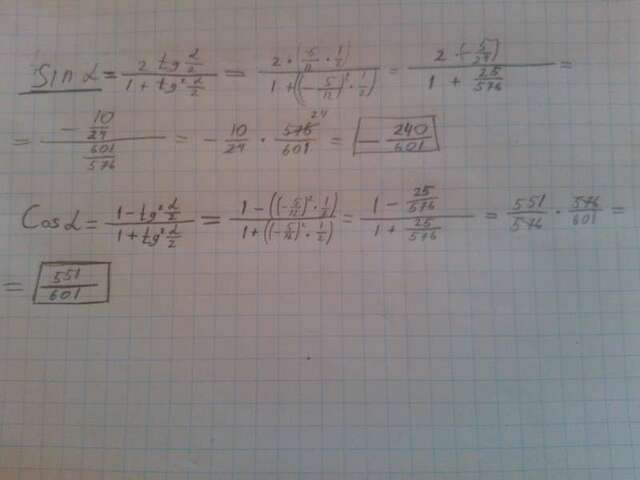 Sin α = (2 tg α/2)/(1 + tg² α/2) = (2 · (-5/12 · 1/2))/(1 + ((-5/12)² · 1/2)) = (2 · (-5/24))/(1 + 25/576) =
= (-10/24)/(601/576) = -10/24 · 576/601 24 = -240/601
Cos α = (1 - tg² α/2)/(1 + tg² α/2) = (1 - ((-5/12)² · 1/2))/(1 + ((-5/12)² · 1/2)) = (1 - 25/576)/(1 + 25/576) = 551/576 · 576/601 =
= 551/601